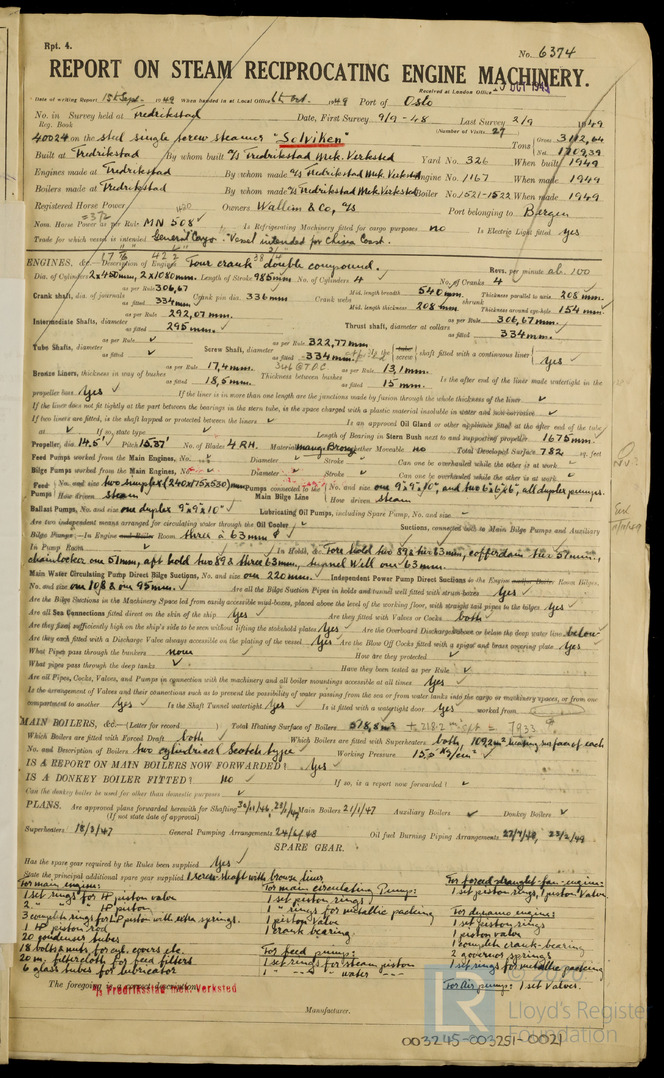 Rpt. 4.
No. 6374
REPORT ON STEAM RECIPROCATING ENGINE MACHINERY.
Received at London Office OCT 1949
Date of writing Report 15th Sept. 1949 When handed in at Local Office Oct. 1949 Port of Oslo
No. in Survey held at Fredrikstad Date, First Survey 9/9-48 Last Survey 2/9 1949
Reg. Book (Number of Visits 29
40024 on the steel single screw steamer "Solviken" Tons Gross 3112,04 Net 1709,39
Built at Fredrikstad By whom built A/S Fredrikstad Mek. Verksted Yard No. 326 When built 1949
Engines made at Fredrikstad By whom made A/S Fredrikstad Mek. Verksted Engine No. 1167 When made 1949
Boilers made at Fredrikstad By whom made A/S Fredrikstad Mek. Verksted Boiler No. 1521-1522 When made 1949
Registered Horse Power Owners Wallem & Co., A/S Port belonging to Bergen
Nom. Horse Power as per Rule =372 MN 508 Is Refrigerating Machinery fitted for cargo purposes no Is Electric Light fitted yes
Trade for which vessel is intended General Cargo Vessel intended for China Coast.
ENGINES, &c. Description of Engines Four crank double compound. Revs. per minute ab. 100
Dia. of Cylinders 2x450mm, 2x1080mm. Length of Stroke 985mm. No. of Cylinders 4 No. of Cranks 4
Crank shaft, dia. of journals as per Rule 306,67 as fitted 334mm. Crank pin dia. 336mm Crank webs Mid. length breadth 540mm. Mid. length thickness 208mm. shrunk Thickness parallel to axis 208mm. Thickness around eye-hole 154mm.
Intermediate Shafts, diameter as per Rule 292,07mm as fitted 295mm. Thrust shaft, diameter at collars as per Rule 306,67mm as fitted 334mm.
Tube Shafts, diameter as per Rule as fitted Screw Shaft, diameter as per Rule 322,77mm as fitted 334mm. Is the screw shaft fitted with a continuous liner Yes
Bronze Liners, thickness in way of bushes as per Rule 17,4mm. as fitted 18,5mm. Thickness between bushes as per Rule 13,1mm. as fitted 15mm. Is the after end of the liner made watertight in the
propeller boss Yes If the liner is in more than one length are the junctions made by fusion through the whole thickness of the liner
If the liner does not fit tightly at the part between the bearings in the stern tube, is the space charged with a plastic material insoluble in water and non-corrosive
If two liners are fitted, is the shaft lapped or protected between the liners Is an approved Oil Gland or other appliance fitted at the after end of the tube
shaft If so, state type Length of Bearing in Stern Bush next to and supporting propeller 1675mm.
Propeller, dia. 14.5' Pitch 15.37' No. of Blades 4 R.H. Material mang. Bronz whether Moveable no Total Developed Surface 782 sq. feet
Feed Pumps worked from the Main Engines, No. Diameter Stroke Can one be overhauled while the other is at work
Bilge Pumps worked from the Main Engines, No. Diameter Stroke Can one be overhauled while the other is at work
Feed Pumps No. and size two simplex (240x175x530)mm. How driven steam Pumps connected to the Main Bilge Line No. and size one 9"x9"x10", and two 6"x6"x6", all duplex pumps. How driven steam
Ballast Pumps, No. and size one duplex 9"x9"x10" Lubricating Oil Pumps, including Spare Pump, No. and size
Are two independent means arranged for circulating water through the Oil Cooler Suctions, connected to Main Bilge Pumps and Auxiliary
Bilge Pumps:—In Engine and Boiler Room three à 63mm φ
In Pump Room In Holds, &c. Fore hold two 89 & two 63mm, cofferdam two 51mm,
chainlocker one 51mm, aft hold two 89 & three 63mm, tunnel well one 63mm.
Main Water Circulating Pump Direct Bilge Suctions, No. and size one 220mm. Independent Power Pump Direct Suctions to the Engine Room Bilges,
No. and size one 108 & one 95mm. Are all the Bilge Suction Pipes in holds and tunnel well fitted with strum boxes Yes
Are the Bilge Suctions in the Machinery Space led from easily accessible mud-boxes, placed above the level of the working floor, with straight tail pipes to the bilges Yes
Are all Sea Connections fitted direct on the skin of the ship Yes Are they fitted with Valves or Cocks both
Are they fixed sufficiently high on the ship's side to be seen without lifting the stokehold plates Yes Are the Overboard Discharges above or below the deep water line below
Are they each fitted with a Discharge Valve always accessible on the plating of the vessel Yes Are the Blow Off Cocks fitted with a spigot and brass covering plate Yes
What Pipes pass through the bunkers none How are they protected
What pipes pass through the deep tanks Have they been tested as per Rule
Are all Pipes, Cocks, Valves, and Pumps in connection with the machinery and all boiler mountings accessible at all times Yes
Is the arrangement of Valves and their connections such as to prevent the possibility of water passing from the sea or from water tanks into the cargo or machinery spaces, or from one
compartment to another Yes Is the Shaft Tunnel watertight Yes Is it fitted with a watertight door Yes worked from
MAIN BOILERS, &c.—(Letter for record ) Total Heating Surface of Boilers 518,8m² + 218.2 m² = 7933
Which Boilers are fitted with Forced Draft both Which Boilers are fitted with Superheaters both, 109,2m² heating surface of each
No. and Description of Boilers two cylindrical Scotch type Working Pressure 15,5 Kg/cm²
IS A REPORT ON MAIN BOILERS NOW FORWARDED? Yes
IS A DONKEY BOILER FITTED? No If so, is a report now forwarded?
Can the donkey boiler be used for other than domestic purposes
PLANS. Are approved plans forwarded herewith for Shafting Main Boilers 21/1/47 Auxiliary Boilers Donkey Boilers
(If not state date of approval)
Superheaters 18/3/47 General Pumping Arrangements 24/6/48 Oil fuel Burning Piping Arrangements 27/7/48, 23/2/49
SPARE GEAR.
Has the spare gear required by the Rules been supplied Yes
State the principal additional spare gear supplied 1 screw-shaft with bronze liner
For main engine:
1 set rings for HP piston valve
2 " " HP piston
3 complete rings for LP piston with extra springs.
1 HP piston rod
20 condenser tubes
18 bolts & nuts for cyl. covers etc.
20 m. filtercloth for feed filters
6 glass tubes for lubricator
For main circulating Pump:
1 set piston rings
1 " rings for metallic packing
1 piston valve
1 crank bearing.
For feed pump:
1 set rings for steam piston
1 " " " water "
For forced draught-fan-engine:
1 set piston rings, 1 piston valve
For dynamo engine:
1 set piston rings
1 piston valve
1 complete crank-bearing
2 governor springs
1 set rings for metallic packing
For Air pump: 1 set valves.
The foregoing is a correct description
A/S Fredrikstad Mek. Verksted
Manufacturer.
LR
Lloyd's Register
Foundation
003245-003251-0021